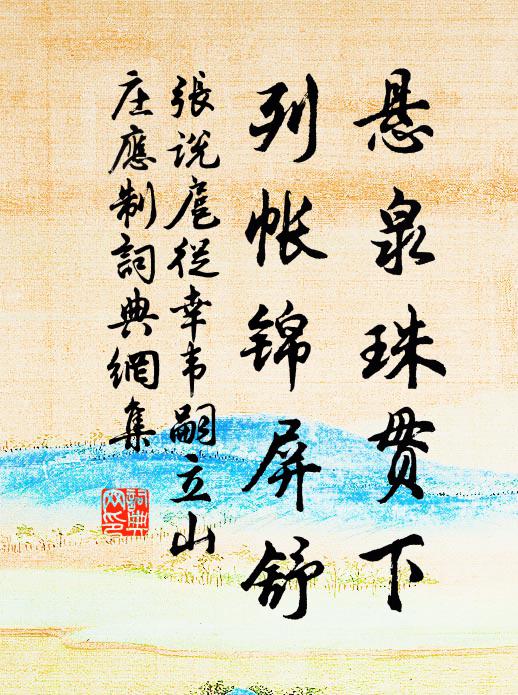 悬泉珠贯下
列帐锦屏舒
張说扈從幸韦嗣立山
庄應制詞典網集
詞典網印